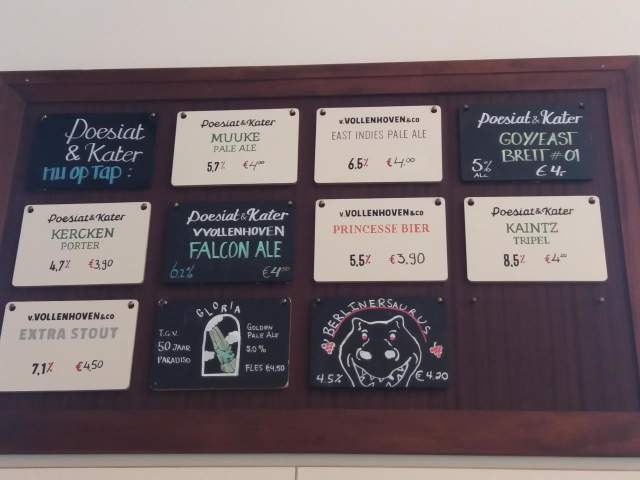 Poesiat
& Kater
nu op tap :
Poesiat & Kater
MUUKE
PALE ALE
5,7% €4,00
v.VOLLENHOVEN&CO
EAST INDIES PALE ALE
6.5% €4.00
Poesiat & Kater
GOY/EAST
BRETT #01
5%
ALL €4,-
Poesiat & Kater
KERCKEN
PORTER
4,7% €3,90
Poesiat & Kater
VVOLLENHOVEN
FALCON ALE
6.2% €4,00
v.VOLLENHOVEN&CO
PRINCESSE BIER
5,5% €3.90
Poesiat & Kater
KAINTZ
TRIPEL
8,5% €4,00
v.VOLLENHOVEN&CO
EXTRA STOUT
7,1% €4,50
GLORIA
T.G.V.
50 JAAR
PARADISO
GOLDEN
PALE ALE
5.0%
FLES €4,50
BERLINERSAURUS
4.5% €4.20